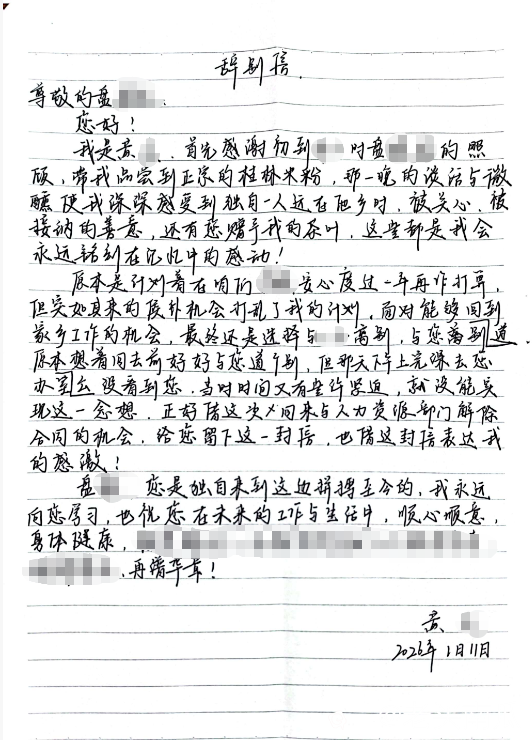 辞别信.
尊敬的盘
您好！
我是黄 . 首先感谢初到 时盘 的照
顾，带我品尝到正宗的桂林米粉，那一晚的谈话与微
醺使我深深感受到独自一人远在他乡时，被关心、被
接纳的善意，还有您赠予我的茶叶，这些都是我会
永远铭刻在记忆中的感动！
原本是计划着在咱们 安心度过一年再作打算，
但突如其来的候补机会打乱了我的计划，面对能够回到
家乡工作的机会，最终还是选择与 离别，与您离别 道
原本想着回去前好好与您道个别，但那天下午上完课去您
办 没看到您，当时时间又有些许紧迫，就没能实
现这一念想，正好借这次回来与人力资源部门解除
合同的机会，给您留下这一封信，也借这封信表达我
的感激！
盘 您是独自来到这边拼搏至今的，我永远
向您学习，也祝您在未来的工作与生活中，顺心顺意，
身体健康，
再谱华章！
黄
2026年1月11日